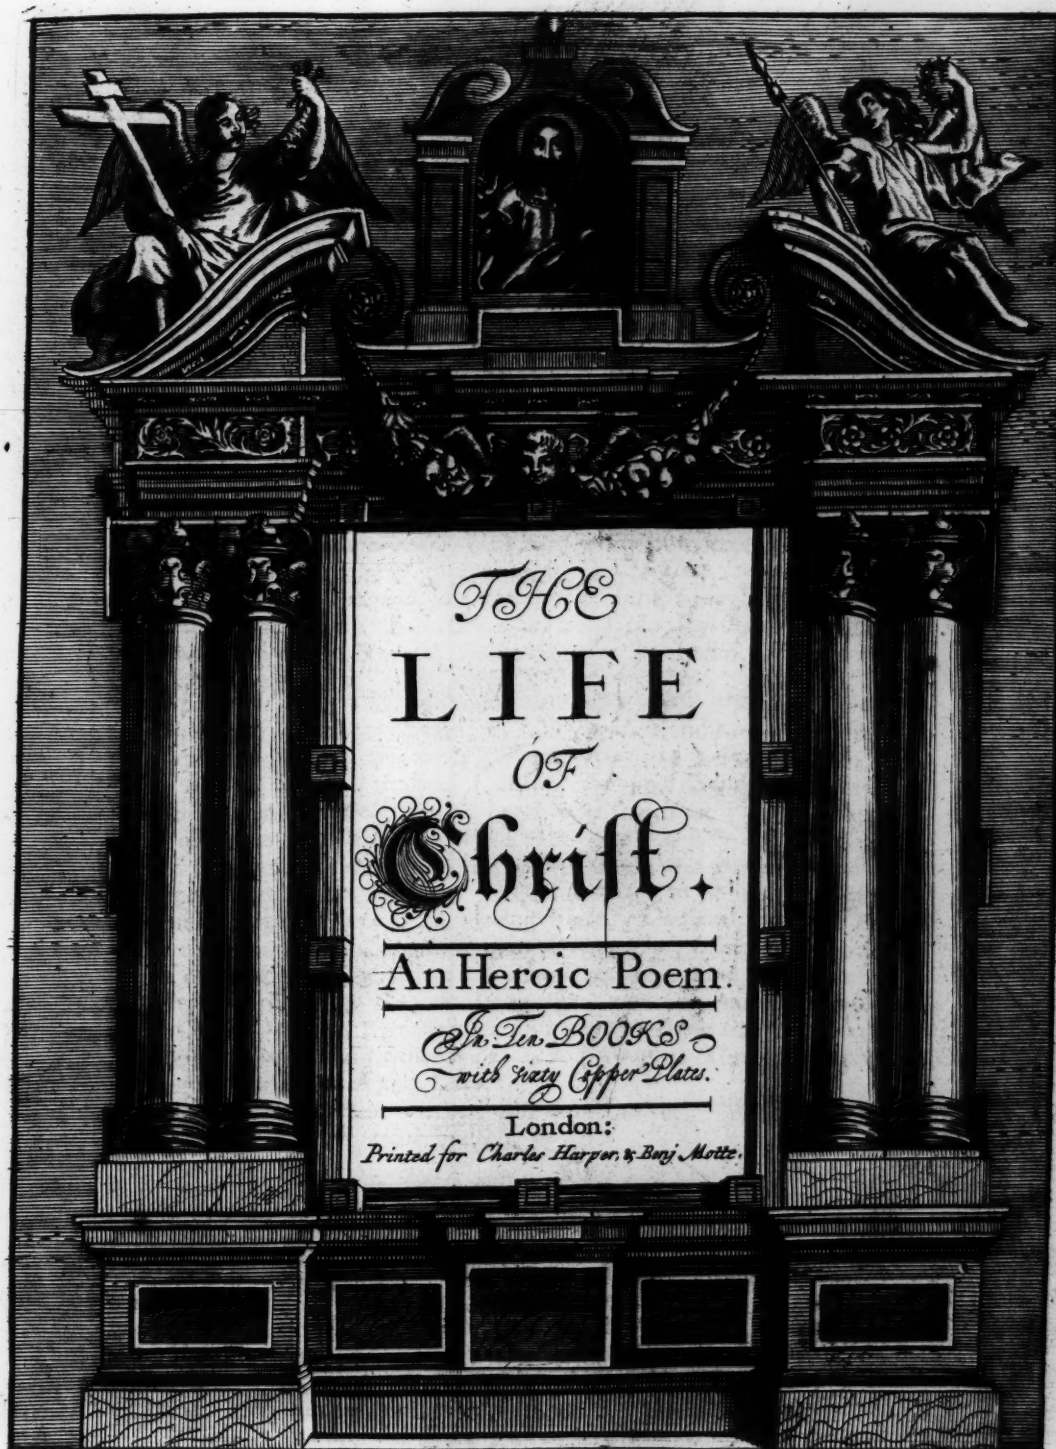 THE
LIFE
OF
Chriſt.
An Heroic Poem.
In Ten BOOKS
with sixty Copper Plates.
London:
Printed for Charles Harper, & Benj Motte.